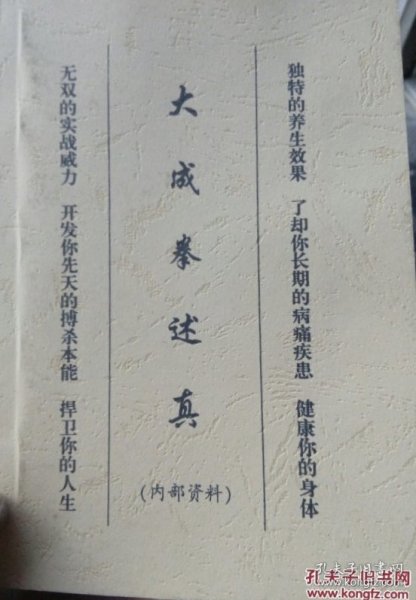 独特的养生效果 了却你长期的病痛疾患 健康你的身体
大成拳述真
(内部资料)
无双的实战威力 开发你先天的搏杀本能 捍卫你的人生
孔夫子旧书网
孔夫子旧书网
www.kongfz.com